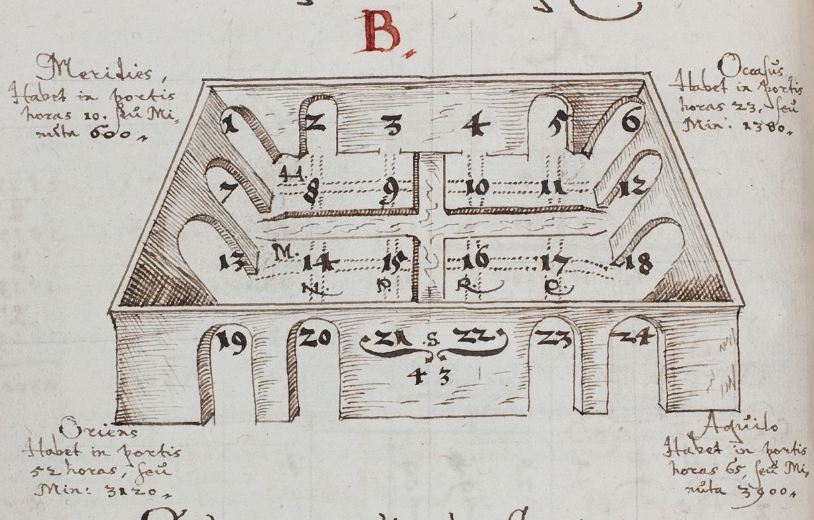 B.
Meridies,
Habet in portis
horas 10. seu Mi,
nuta 600,
Occasus,
Habet in portis
horas 23, seu
Min: 1380,
1 2 3 4 5 6
7 8 9 10 11 12
M.
13 14 15 16 17 18
19 20 21 S 22 23 24
43
Oriens
Habet in portis
52 horas, seu
Min: 3120,
Aquilo
Habet in portis
horas 65, seu Mi,
nuta 3900,